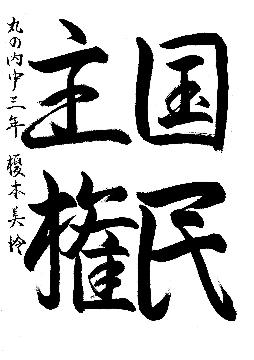 国民
主権
丸の内中三年 榎本美怜